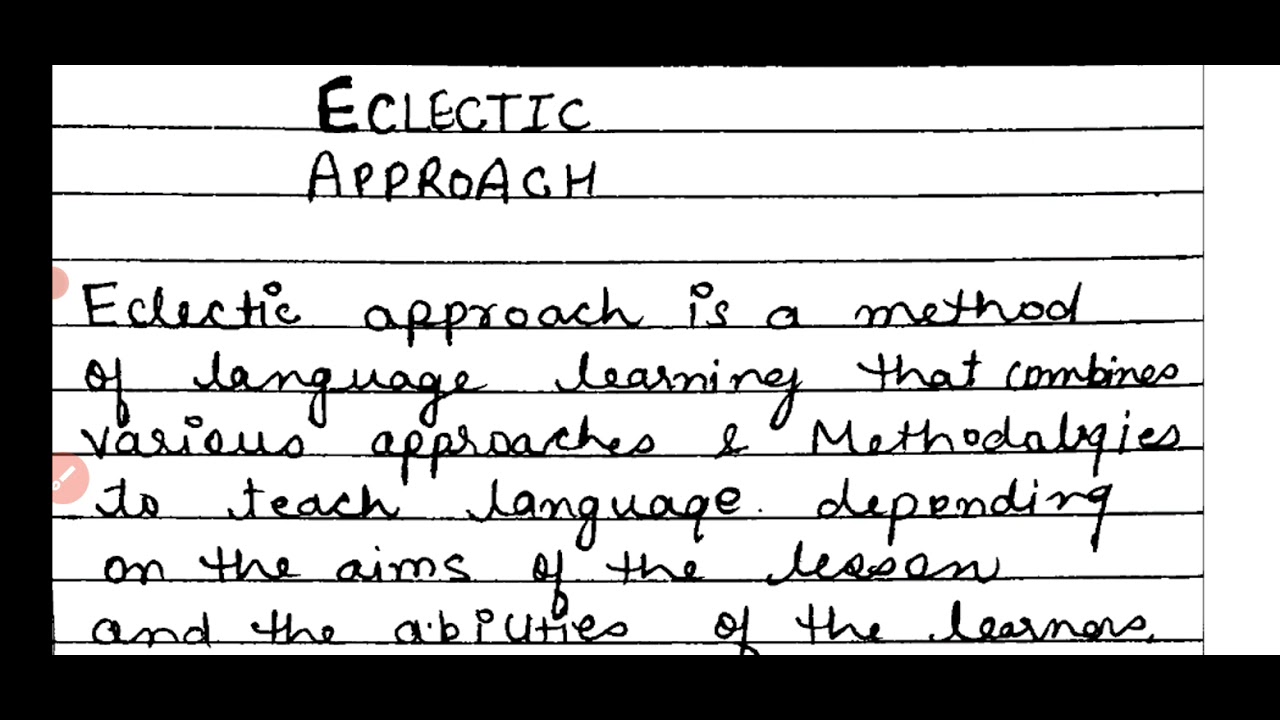 ECLECTIC
APPROACH
Eclectic approach is a method
of language learning that combines
various approaches & Methodologies
to teach language. depending
on the aims of the lesson
and the abilities of the learners.